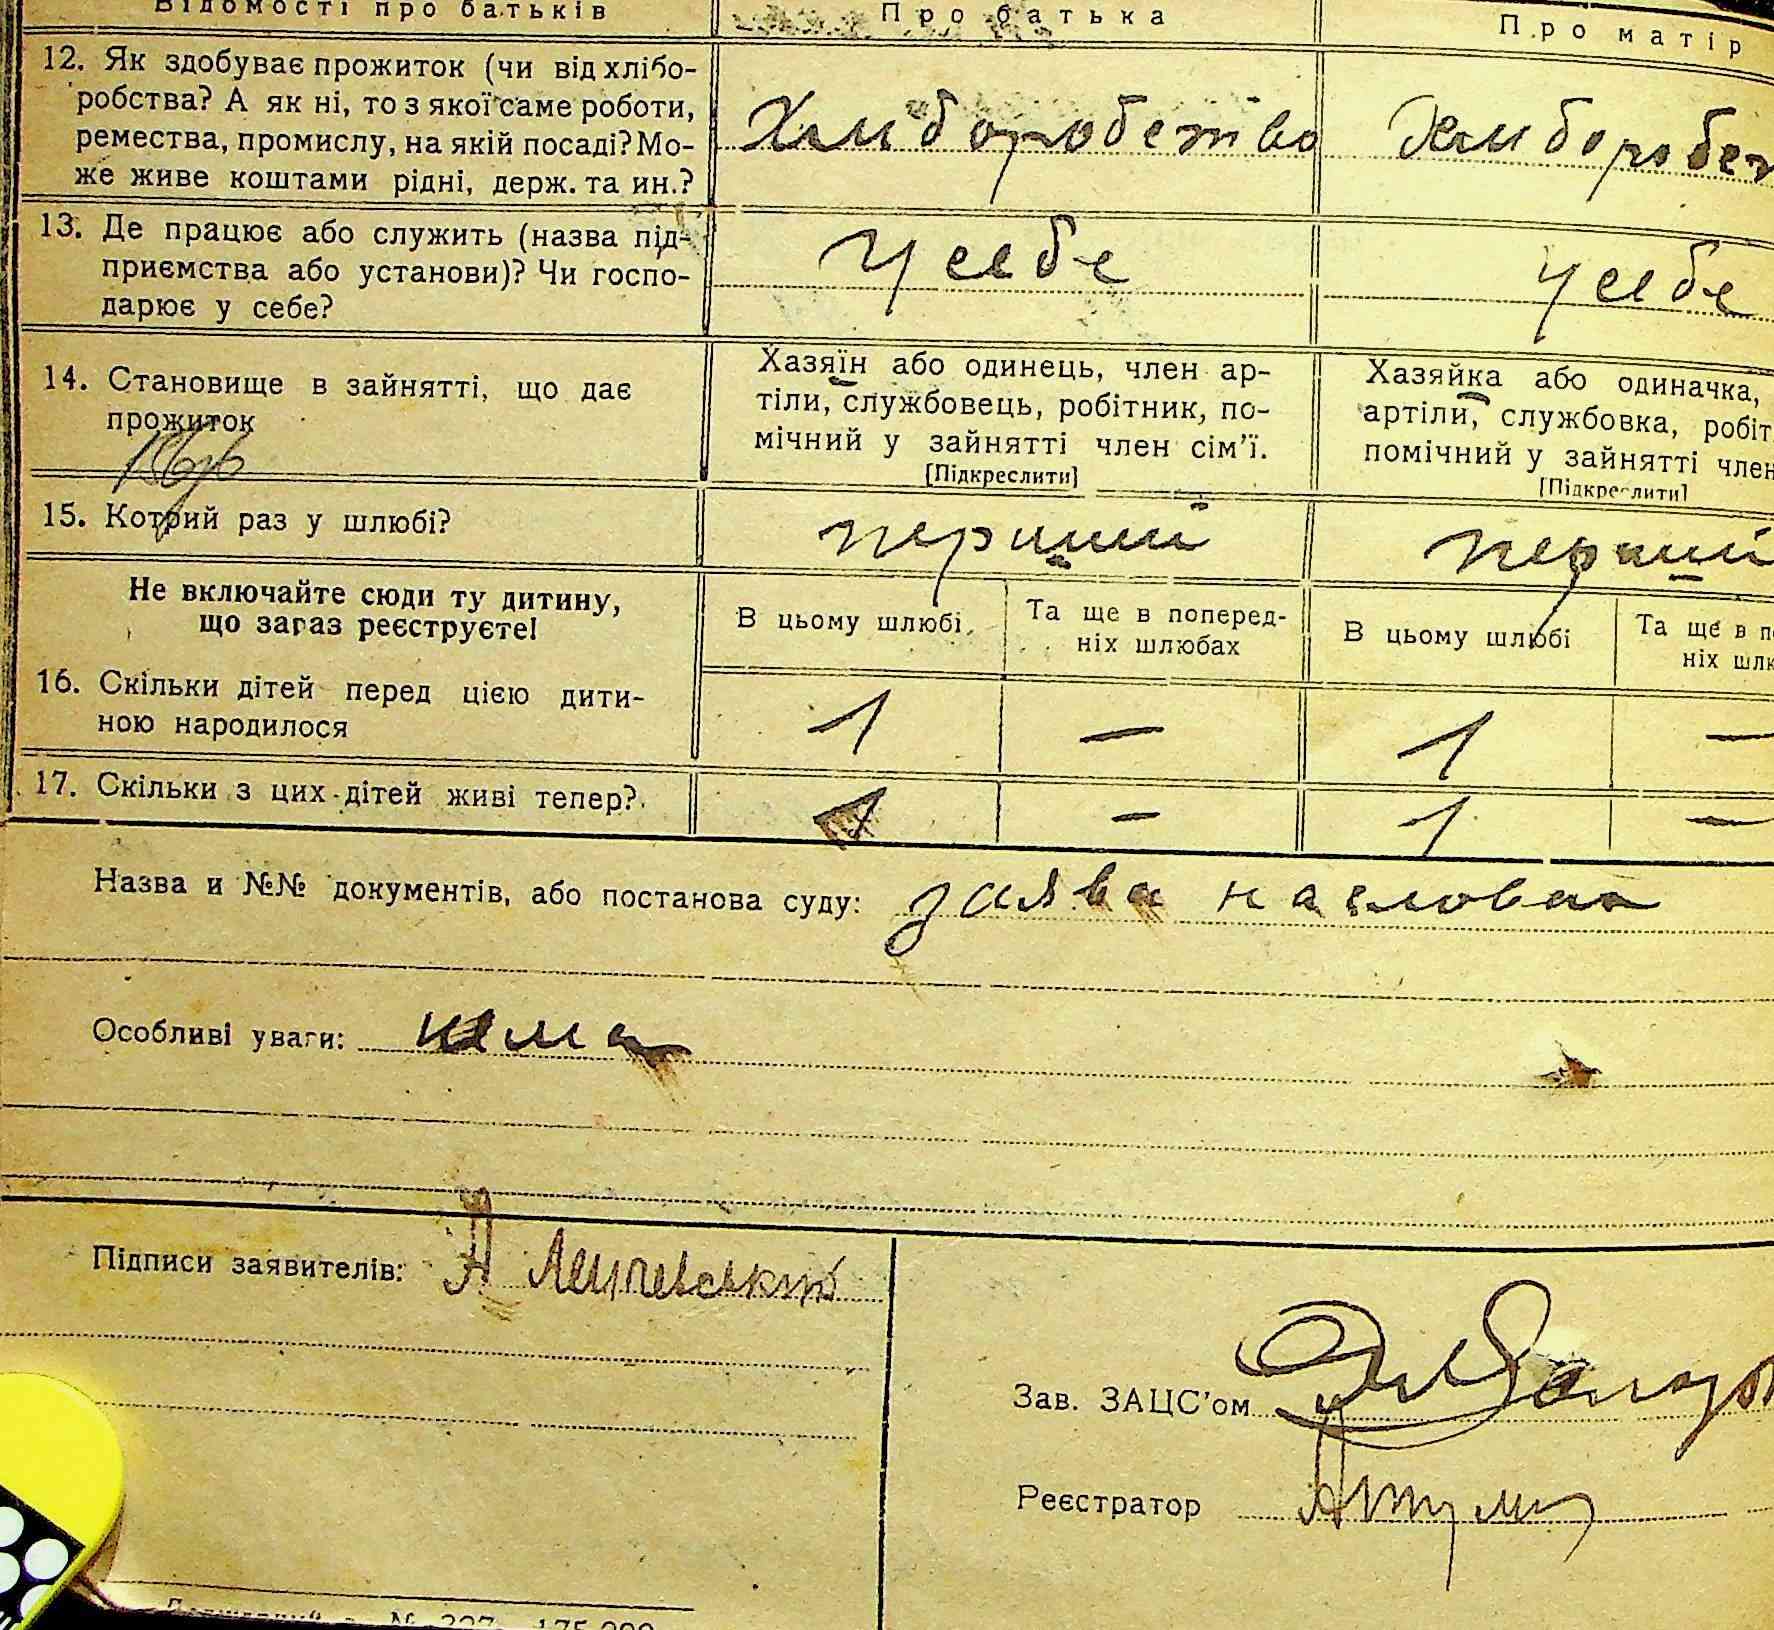 Відомості про батьків Про батька Про матір
12. Як здобуває прожиток (чи від хлібо-
робства? А як ні, то з якої саме роботи,
ремества, промислу, на якій посаді? Мо-
же живе коштами рідні, держ. та ин.?
Хліборобство Хлібороб
13. Де працює або служить (назва під-
приємства або установи)? Чи госпо-
дарює у себе?
У себе У себе
14. Становище в зайнятті, що дає
прожиток
Хазяїн або одинець, член ар-
тіли, службовець, робітник, по-
мічний у зайнятті член сім'ї.
[Підкреслити]
Хазяйка або одиначка,
артіли, службовка, робіт
помічний у зайнятті член
[Підкреслити]
15. Котрий раз у шлюбі?
перший перший
Не включайте сюди ту дитину,
що зараз реєструєте!
В цьому шлюбі
Та ще в поперед-
ніх шлюбах
В цьому шлюбі
Та ще в п
ніх шлю
16. Скільки дітей перед цією дити-
ною народилося
1 — 1 —
17. Скільки з цих дітей живі тепер?
1 — 1 —
Назва и №№ документів, або постанова суду: заява
Особливі уваги: нема
Підписи заявителів:
Зав. ЗАЦС'ом
Реєстратор